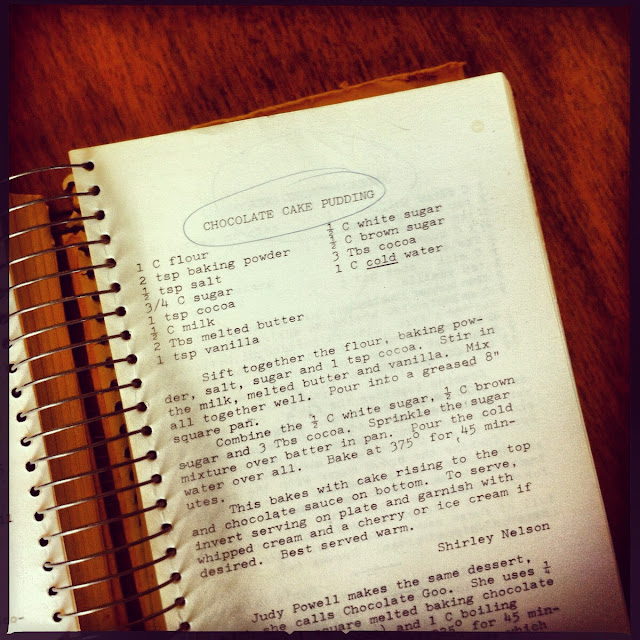 CHOCOLATE CAKE PUDDING
1 C flour
2 tsp baking powder
½ tsp salt
3/4 C sugar
1 tsp cocoa
½ C milk
2 Tbs melted butter
1 tsp vanilla
½ C white sugar
½ C brown sugar
3 Tbs cocoa
1 C cold water
Sift together the flour, baking pow-
der, salt, sugar and 1 tsp cocoa. Stir in
the milk, melted butter and vanilla. Mix
all together well. Pour into a greased 8"
square pan.
Combine the ½ C white sugar, ½ C brown
sugar and 3 Tbs cocoa. Sprinkle the sugar
mixture over batter in pan. Pour the cold
water over all. Bake at 375° for 45 min-
utes.
This bakes with cake rising to the top
and chocolate sauce on bottom. To serve,
invert serving on plate and garnish with
whipped cream and a cherry or ice cream if
desired. Best served warm.
Shirley Nelson
Judy Powell makes the same dessert,
she calls Chocolate Goo. She uses ¼
square melted baking chocolate
and 1 C boiling
for 45 min-
which